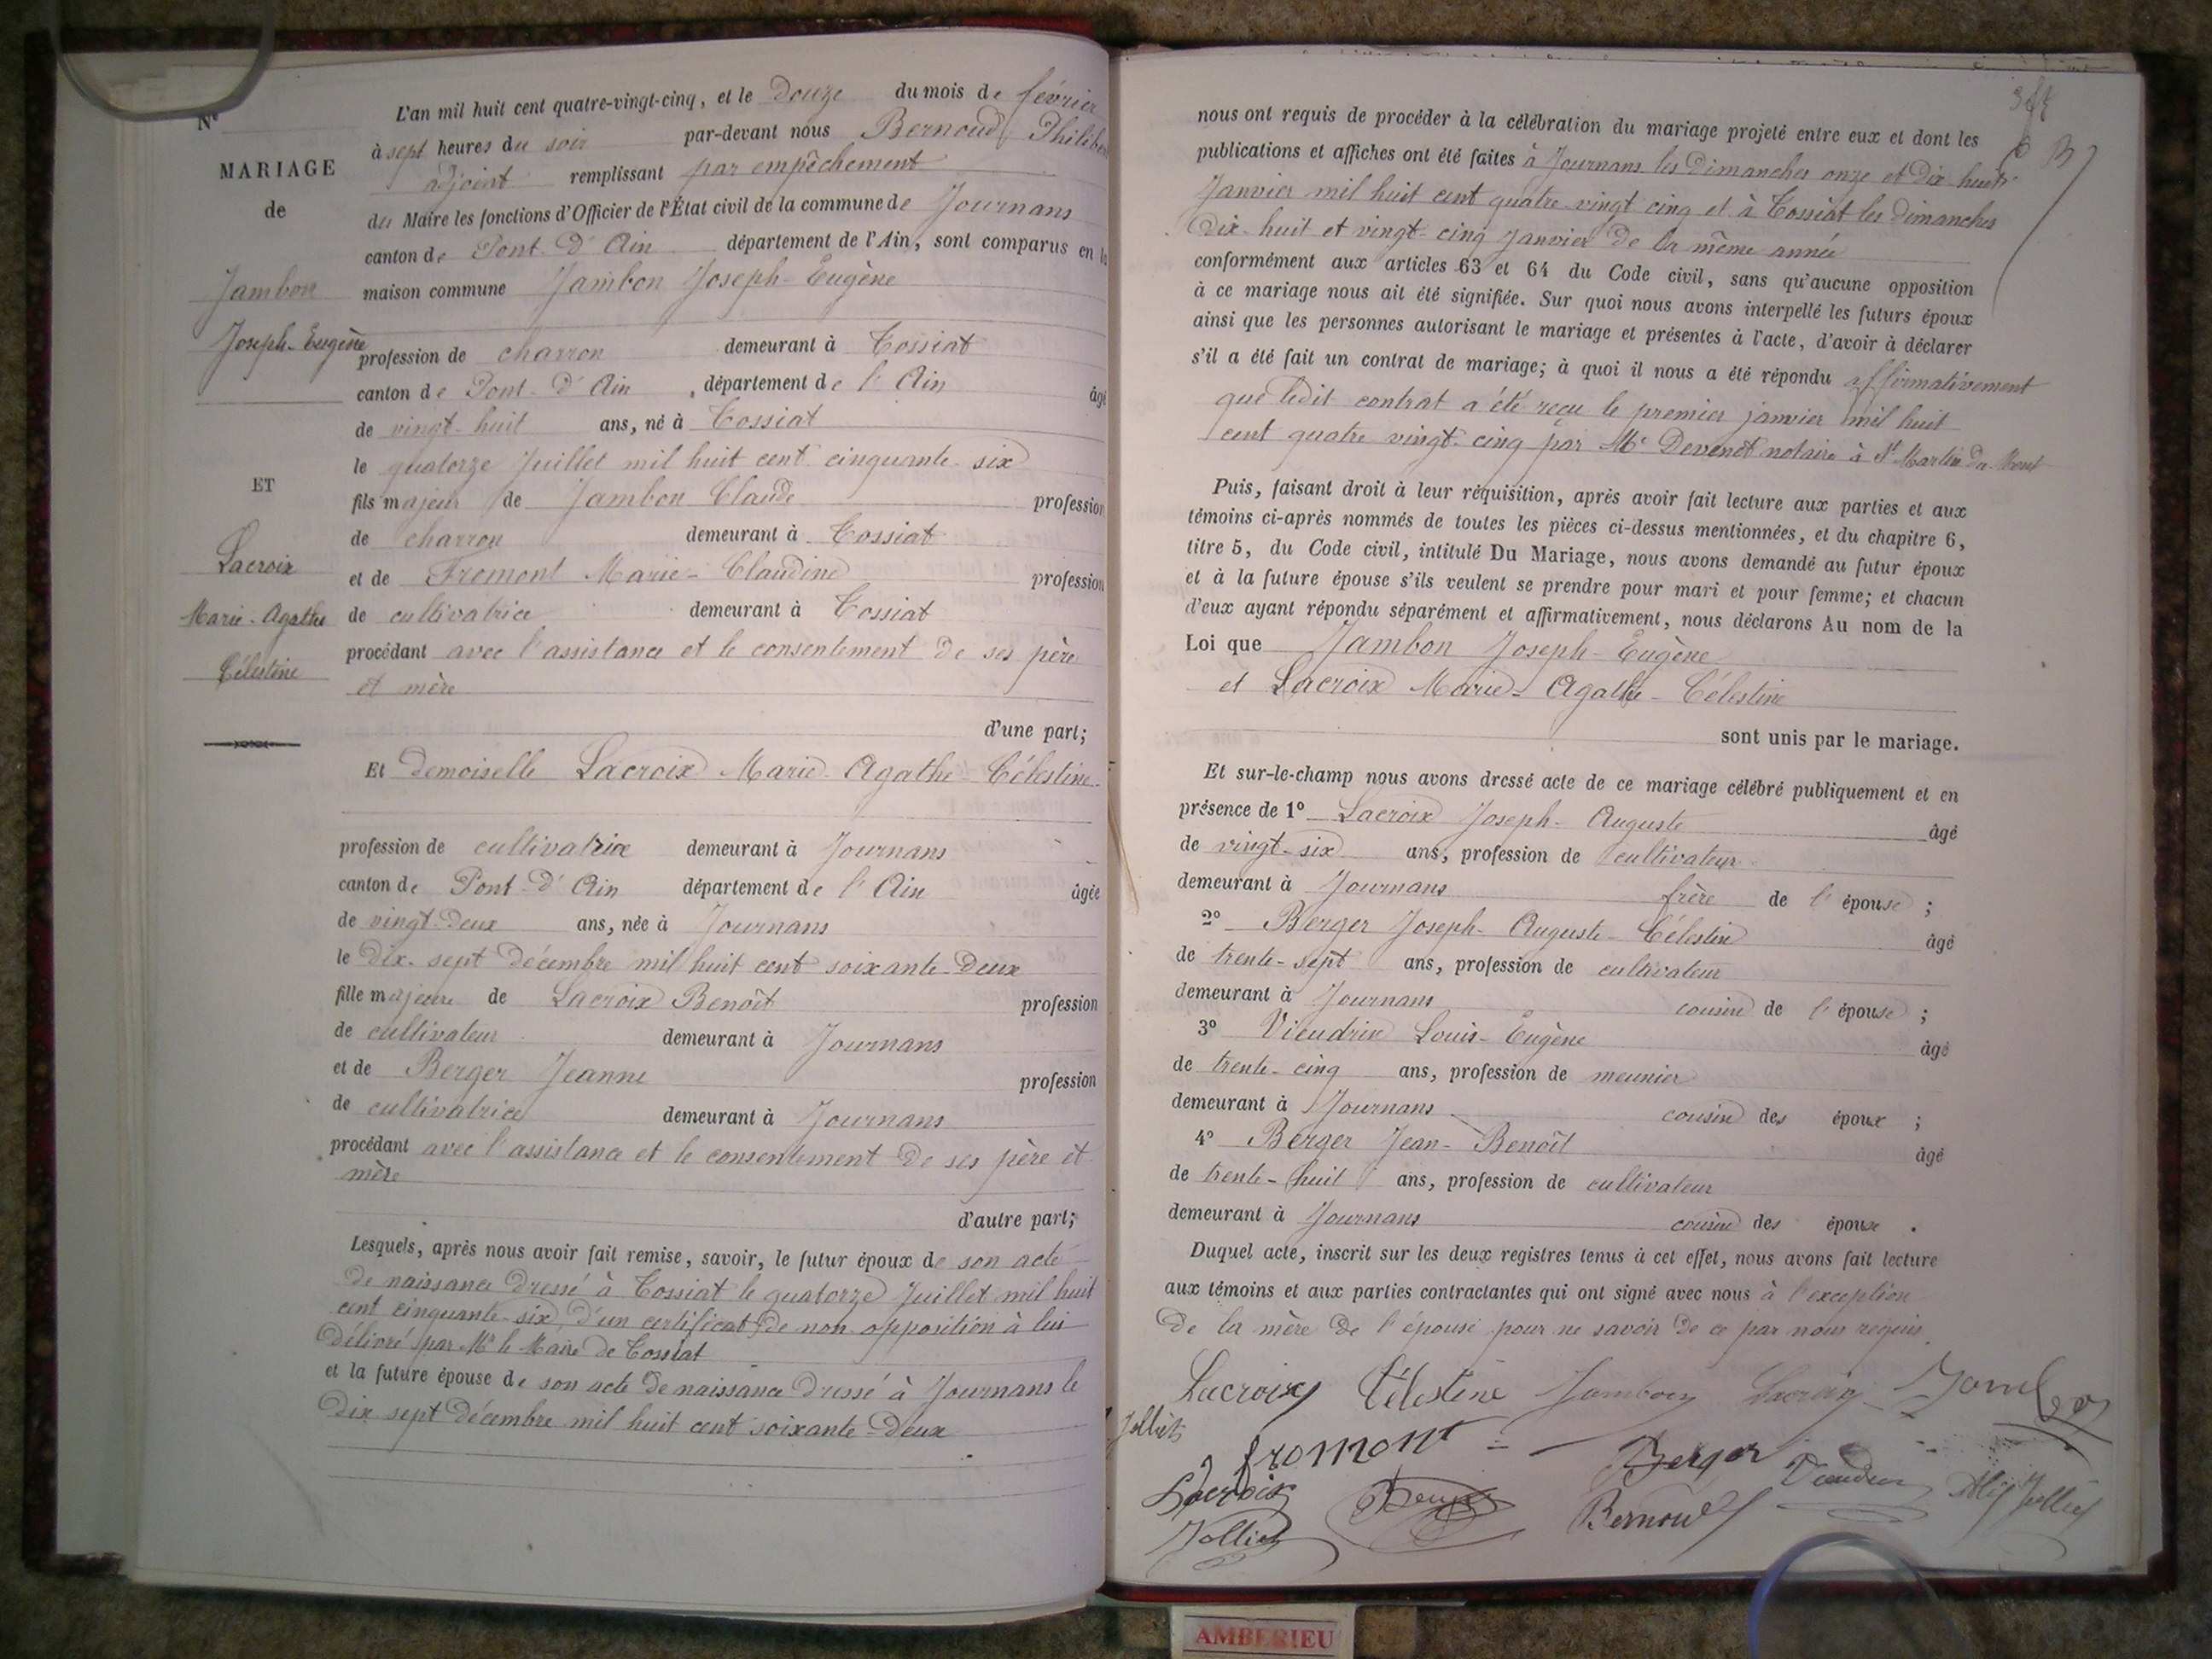 N°
MARIAGE
de
Jambon
Joseph-Eugène
ET
Lacroix
Marie-Agathe
Célestine
L'an mil huit cent quatre-vingt-cinq, et le douze du mois de février
à sept heures du soir par-devant nous Bernoud Philiber
adjoint remplissant par empêchement
du Maire les fonctions d'Officier de l'État civil de la commune de Journans
canton de Pont-d'Ain département de l'Ain, sont comparus en la
maison commune Jambon Joseph-Eugène
profession de charron demeurant à Tossiat
canton de Pont-d'Ain, département de l'Ain âgé
de vingt-huit ans, né à Tossiat
le quatorze Juillet mil huit cent cinquante-six
fils majeur de Jambon Claude profession
de charron demeurant à Tossiat
et de Fremont Marie-Claudine profession
de cultivatrice demeurant à Tossiat
procédant avec l'assistance et le consentement de ses père
et mère
d'une part;
Et demoiselle Lacroix Marie-Agathe-Célestine
profession de cultivatrice demeurant à Journans
canton de Pont-d'Ain département de l'Ain âgée
de vingt-deux ans, née à Journans
le dix-sept décembre mil huit cent soixante-deux
fille majeure de Lacroix Benoît profession
de cultivateur demeurant à Journans
et de Berger Jeanne profession
de cultivatrice demeurant à Journans
procédant avec l'assistance et le consentement de ses père et
mère
d'autre part;
Lesquels, après nous avoir fait remise, savoir, le futur époux de son acte
de naissance dressé à Tossiat le quatorze Juillet mil huit
cent cinquante-six, d'un certificat de non opposition à lui
délivré par Mr le Maire de Tossiat
et la future épouse de son acte de naissance dressé à Journans le
dix sept décembre mil huit cent soixante-deux
nous ont requis de procéder à la célébration du mariage projeté entre eux et dont les
publications et affiches ont été faites à Journans les dimanches onze et dix huit
Janvier mil huit cent quatre-vingt cinq et à Tossiat les dimanches
dix-huit et vingt-cinq Janvier de la même année
conformément aux articles 63 et 64 du Code civil, sans qu'aucune opposition
à ce mariage nous ait été signifiée. Sur quoi nous avons interpellé les futurs époux
ainsi que les personnes autorisant le mariage et présentes à l'acte, d'avoir à déclarer
s'il a été fait un contrat de mariage; à quoi il nous a été répondu affirmativement
que ledit contrat a été reçu le premier janvier mil huit
cent quatre vingt-cinq par Me Devenet notaire à St Martin du Mont
Puis, faisant droit à leur réquisition, après avoir fait lecture aux parties et aux
témoins ci-après nommés de toutes les pièces ci-dessus mentionnées, et du chapitre 6,
titre 5, du Code civil, intitulé Du Mariage, nous avons demandé au futur époux
et à la future épouse s'ils veulent se prendre pour mari et pour femme; et chacun
d'eux ayant répondu séparément et affirmativement, nous déclarons Au nom de la
Loi que Jambon Joseph-Eugène
et Lacroix Marie-Agathe-Célestine
sont unis par le mariage.
Et sur-le-champ nous avons dressé acte de ce mariage célébré publiquement et en
présence de 1° Lacroix Joseph-Auguste âgé
de vingt-six ans, profession de cultivateur
demeurant à Journans frère de l'épouse;
2° Berger Joseph-Auguste-Célestin âgé
de trente-sept ans, profession de cultivateur
demeurant à Journans cousin de l'épouse;
3° Vieudrin Louis-Eugène âgé
de trente-cinq ans, profession de meunier
demeurant à Journans cousin des époux;
4° Berger Jean-Benoît âgé
de trente-huit ans, profession de cultivateur
demeurant à Journans cousin des époux.
Duquel acte, inscrit sur les deux registres tenus à cet effet, nous avons fait lecture
aux témoins et aux parties contractantes qui ont signé avec nous à l'exception
de la mère de l'épouse pour ne savoir de ce par nous requis.
Lacroix Célestine Jambon Lacroix Jambon
Jolliet
fromont Berger
Lacroix Berger Bernoud
Jollier
AMBERIEU